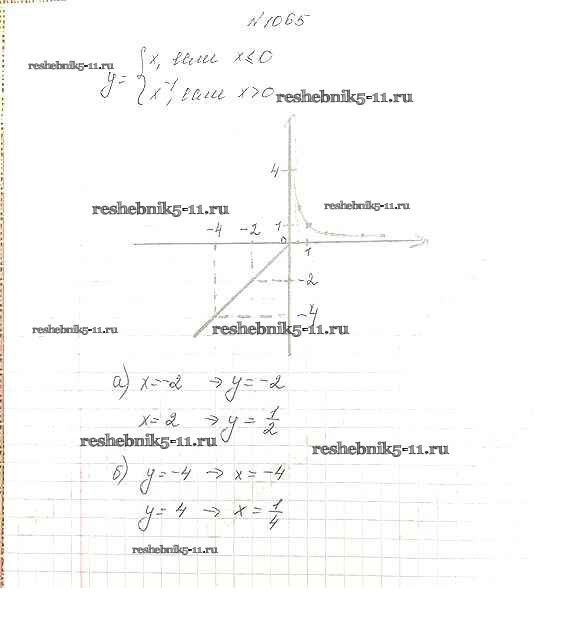 №1065
reshebnik5-11.ru
y = { x, если x ≤ 0
x⁻¹, если x > 0
reshebnik5-11.ru
4
reshebnik5-11.ru
reshebnik5-11.ru
-4 -2 1
0 1
-2
-4
reshebnik5-11.ru
reshebnik5-11.ru
а) x = -2 → y = -2
x = 2 → y = 1/2
reshebnik5-11.ru
reshebnik5-11.ru
б) y = -4 → x = -4
y = 4 → x = 1/4
reshebnik5-11.ru